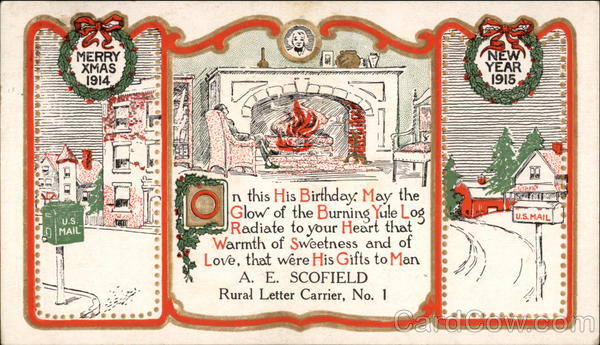 MERRY
XMAS
1914
NEW
YEAR
1915
U.S.
MAIL
U.S. MAIL
On this His Birthday: May the
Glow of the Burning Yule Log
Radiate to your Heart that
Warmth of Sweetness and of
Love, that were His Gifts to Man
A. E. SCOFIELD
Rural Letter Carrier, No. 1
CardCow.com